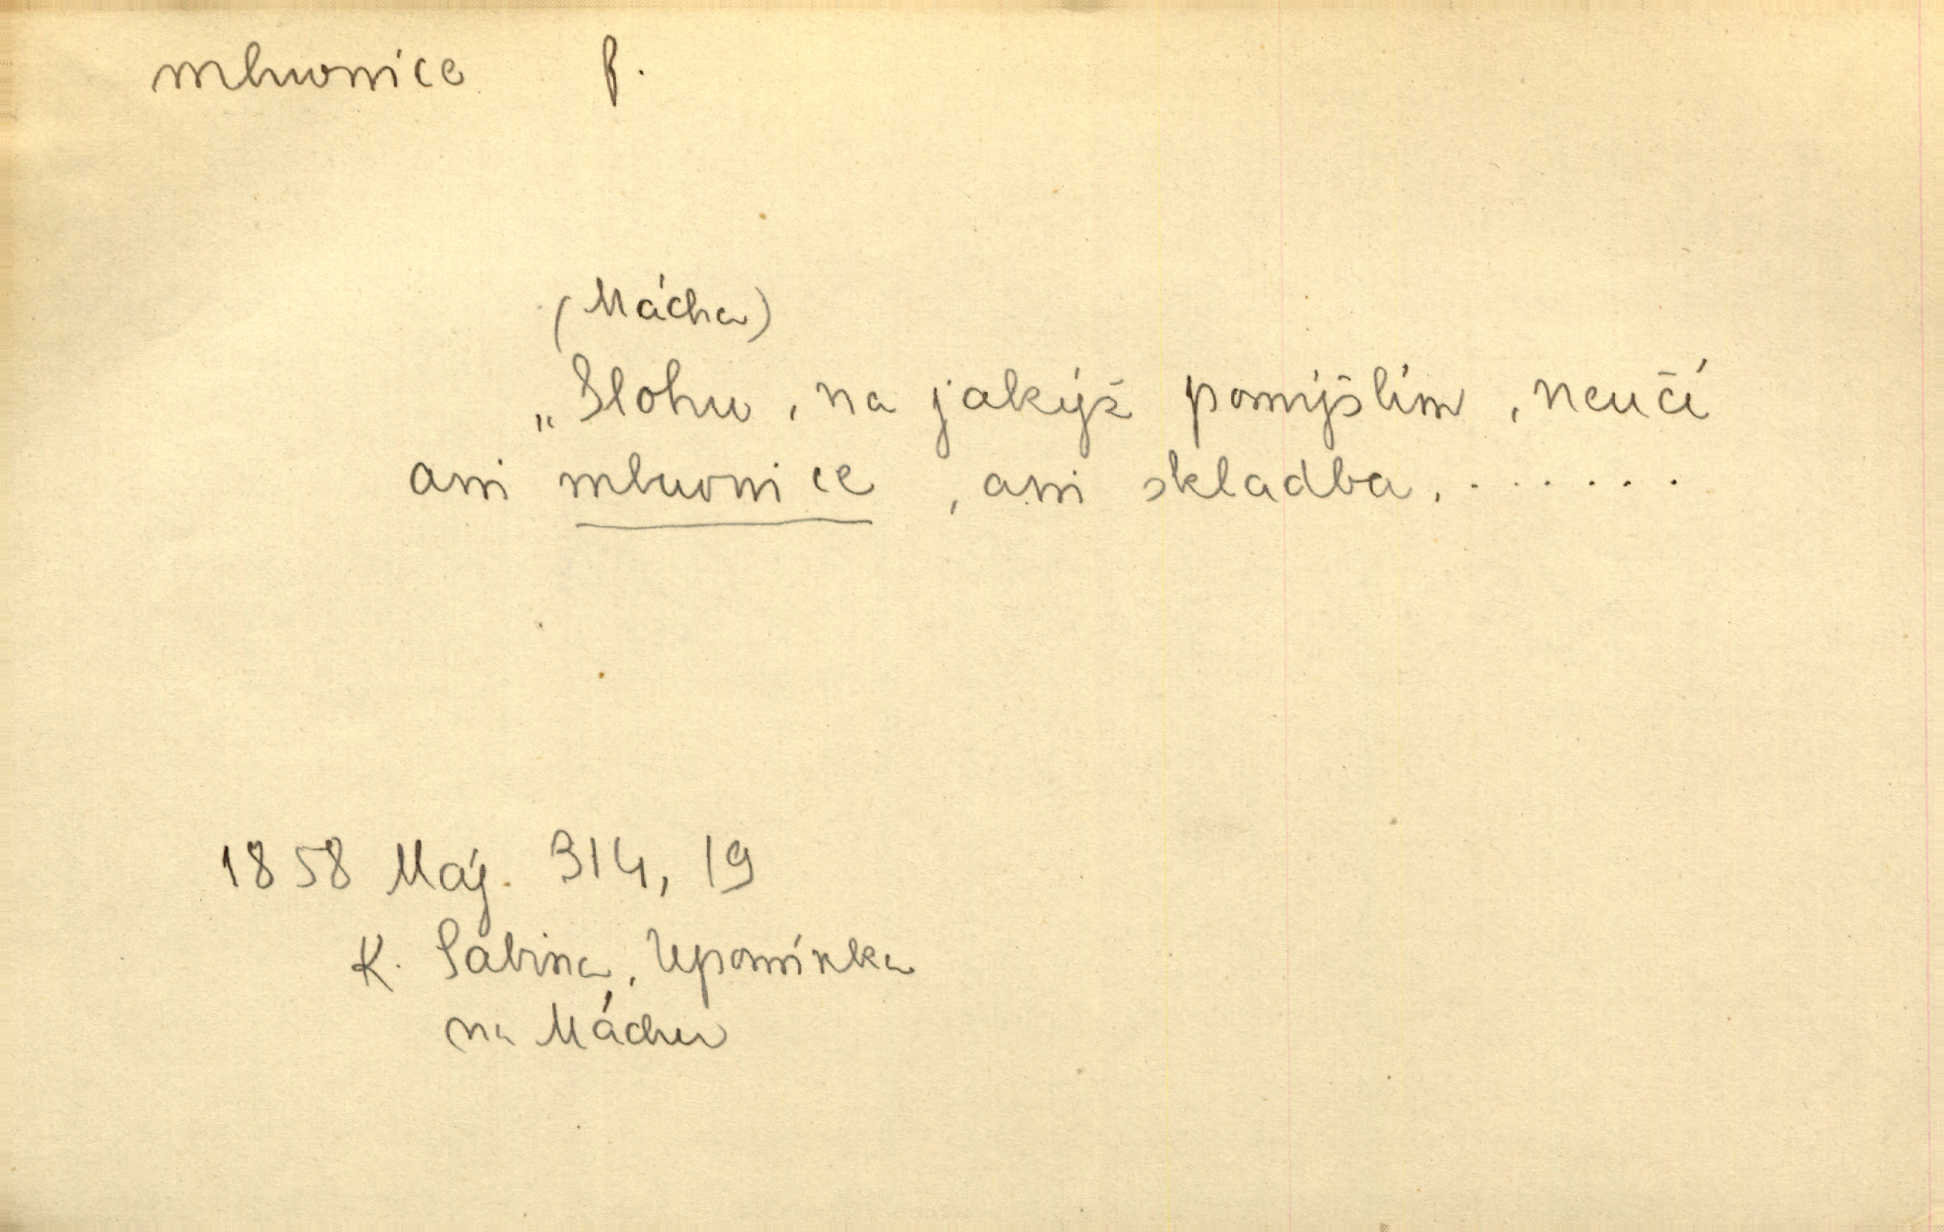 mluvnice f.
(Mácha)
„Slohu, na jakýž pomýšlím, neučí
ani mluvnice, ani skladba, . . . . . .
1858 Máj. 314, 19
K. Sabina, Upomínka
na Máchu